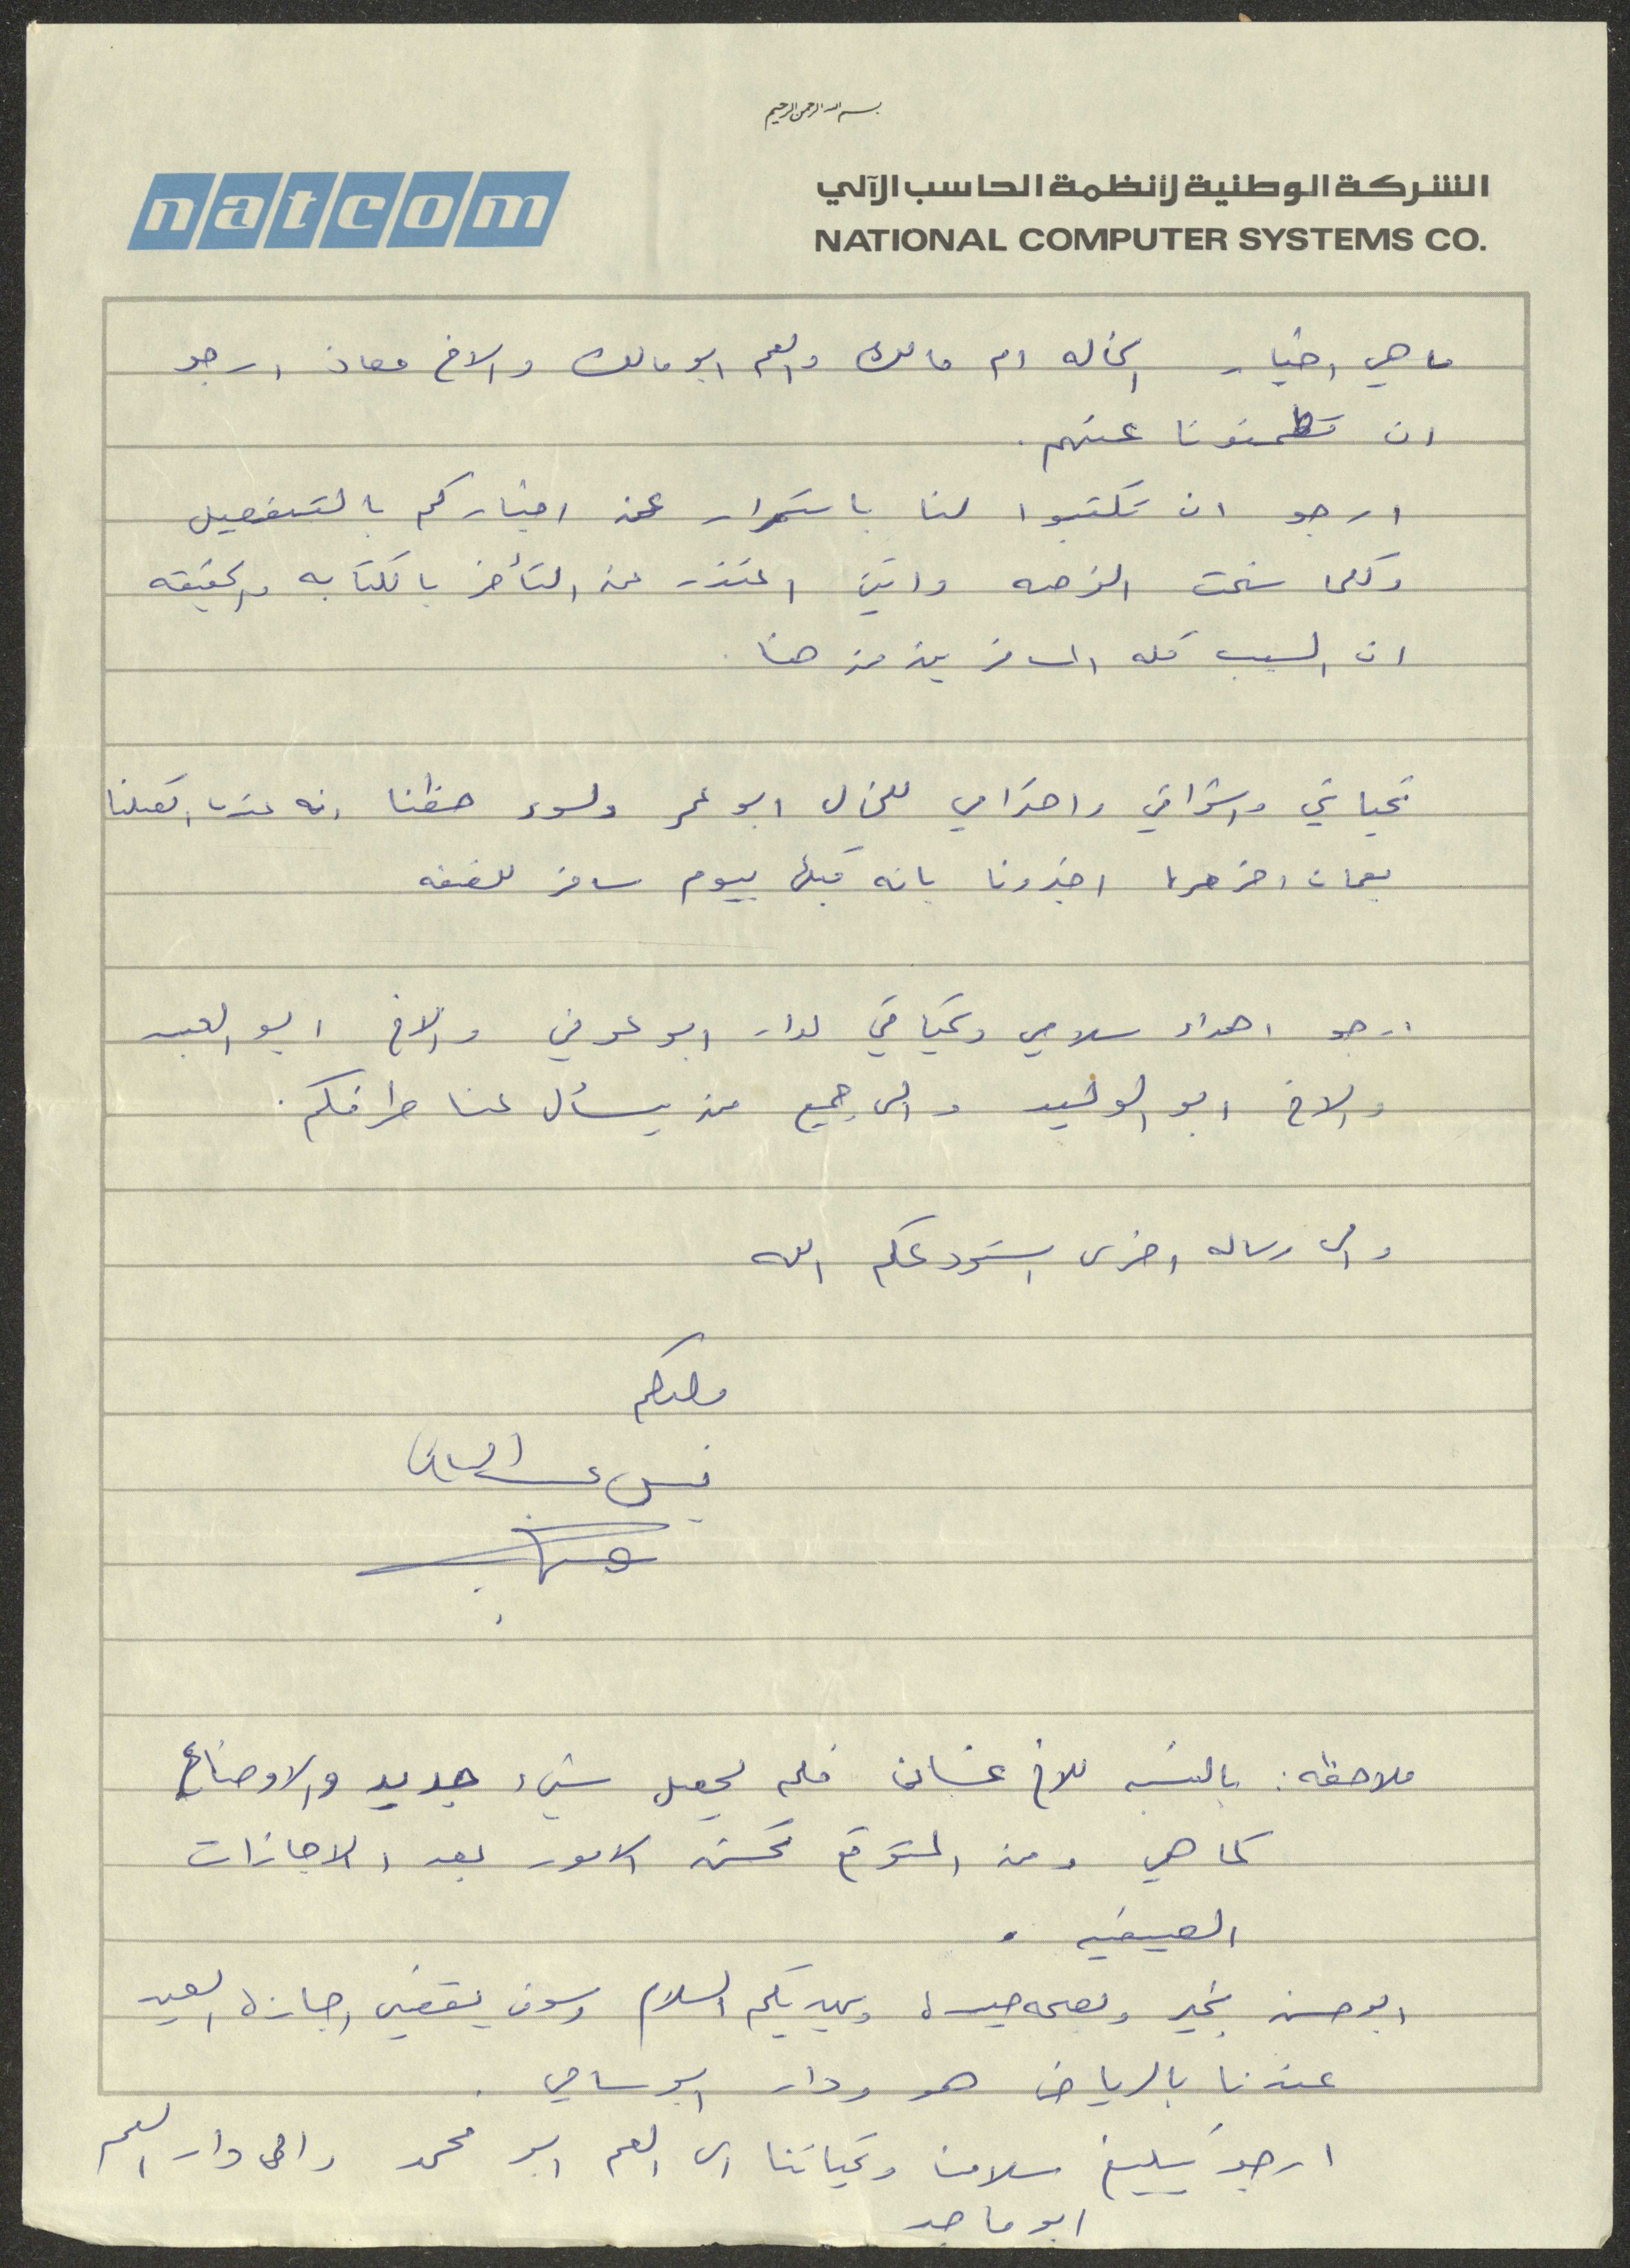 بسم الله الرحمن الرحيم
natcom
الشركة الوطنية لأنظمة الحاسب الآلي
NATIONAL COMPUTER SYSTEMS CO.
ما هي اخبار الخاله ام مالك والعم ابو مالك والاخ معاذ ارجو
ان تطمنونا عنهم.
ارجو ان تكتبوا لنا باستمرار عن اخباركم بالتفصيل
وكلما سنحت الفرصه وانني اعتذر عن التأخر بالكتابه والحقيقه
ان السبب قله المسافرين من هنا.
تحياتي واشواقي واحترامي للخال ابو عمر ولسوء حظنا انه عندما اتصلنا
بعمان اخر مره اخبرونا بانه قبل بيوم سافر للضفه
ارجو اهداء سلامي وتحياتي لدار ابو عوني والاخ ابو العبد
والاخ ابو الوليد والى جميع من يسأل عنا طرفكم.
والى رساله اخرى استودعكم الله
ولدكم
ملاحظه: بالنسبه للاخ غسان فلم يحصل شيء جديد والاوضاع
كما هي ومن المتوقع تحسن الامور بعد الاجازات
الصيفيه.
ابو حسن بخير وبصحه جيده ويهديكم السلام وسوف يقضي اجازة العيد
عندنا بالرياض هو ودار ابو سامي.
ارجو تبليغ سلامنا وتحياتنا الى العم ابو محمد والى دار العم
ابو ماجد